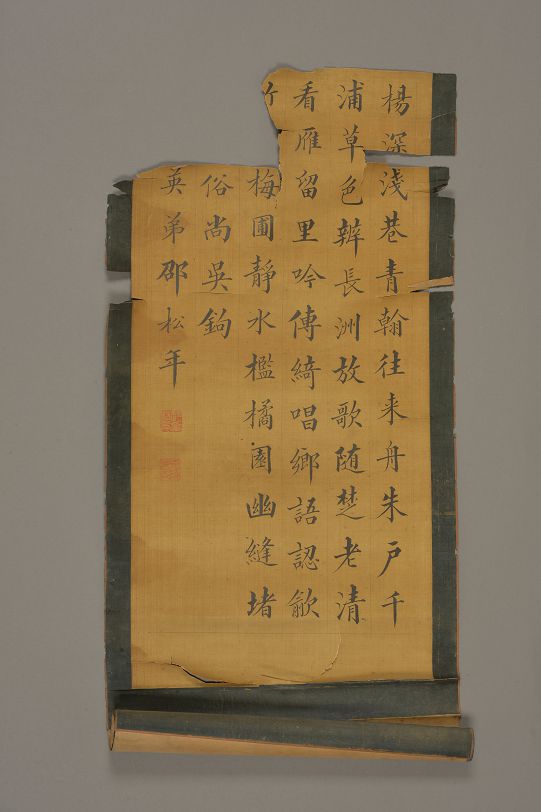 楊深淺巷青翰往来舟朱戶千
浦草色辨長洲放歌随楚老清
看雁留里吟傳綺唱鄉語認歈
梅圃靜水檻橘園幽縫堵
俗尚吳鉤
英弟邵松年